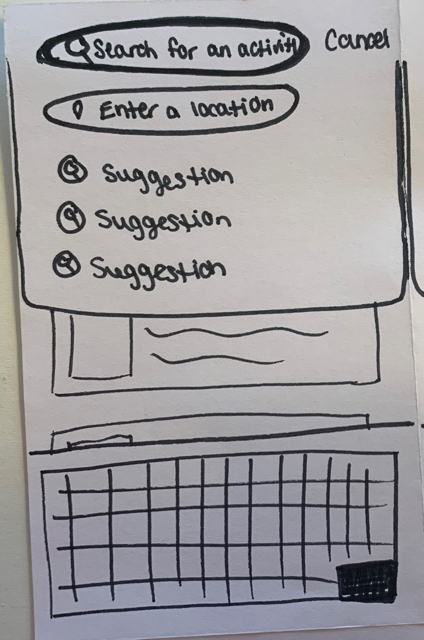 Search for an activiti Cancel
Enter a location
Suggestion
Suggestion
Suggestion